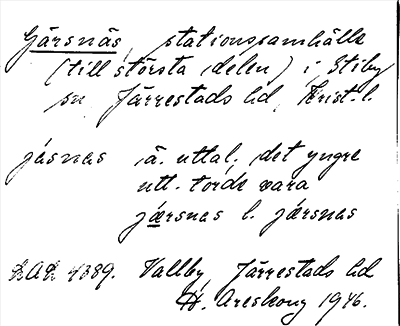 Gärsnäs, stationssamhälle
(till största delen) i Stiby
sn Järrestads hd, Krist. l.
jásnas ä. uttal, det yngre
utt. torde vara
jǽrsnas l. jærsnas
LAL 4389. Vallby, Järrestads hd
H. Areskoug 1946.